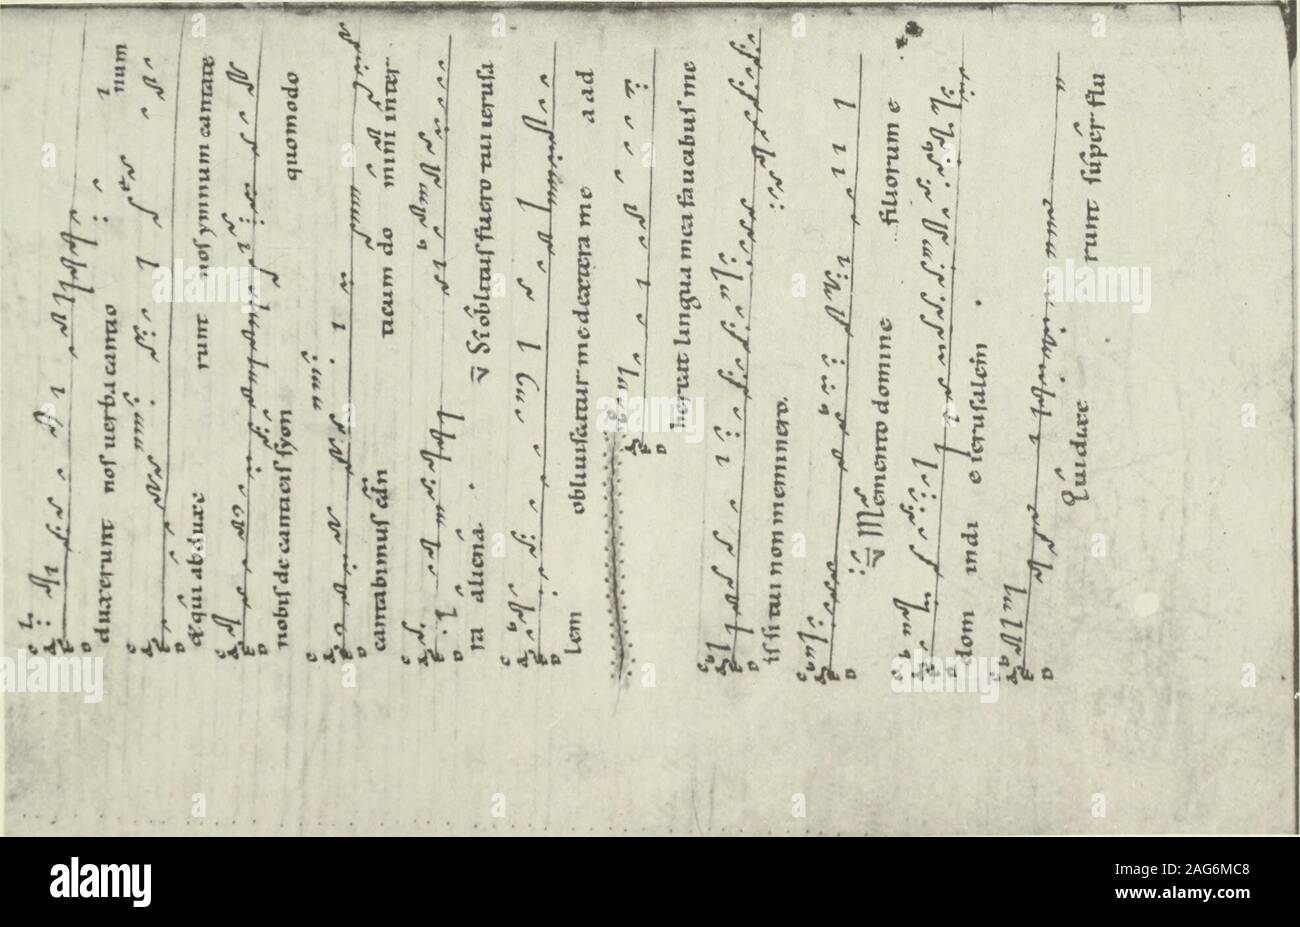 duxerunt nos uerba cantio num
& qui abduxe runt nos ymnum cantare
nobis de canticis syon quomodo
cantabimus cān ticum do mini in ter
ra aliena. V̄ Si oblitus fuero tui ierusa
lem obliuiscatur me dextera me a ad
hereat lingua mea faucibus me
is si tui non meminero.
V̄ Memento domine filiorum e
dom in di e ierusalem
Qui di xe runt super flu
alamy
Image ID: 2AG6MC8
www.alamy.com